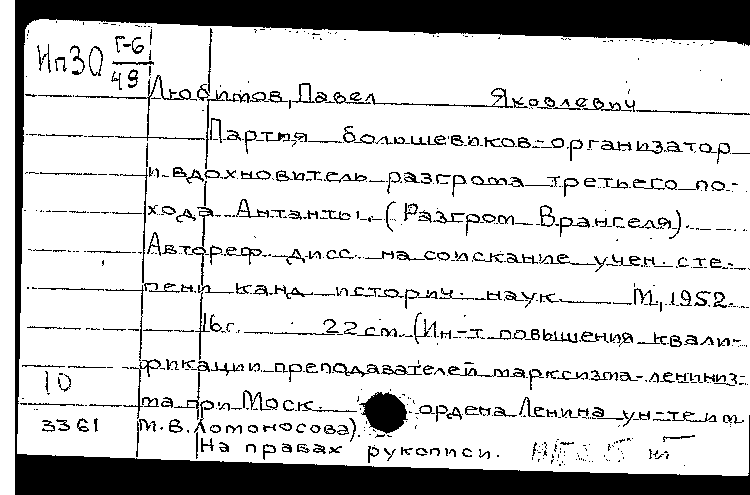 Ип30 Г-6
49
Любимов, Павел Яковлевич
Партия большевиков-организатор
и вдохновитель разгрома третьего по-
хода Антанты. (Разгром Врангеля).
Автореф. дисс. на соискание учен. сте-
пени канд. историч. наук. М., 1952.
16с. 22cm. (Ин-т повышения квали-
фикации преподавателей марксизма-лениниз-
10
ма при Моск. ордена Ленина ун-те им
3361 М.В.Ломоносова).
На правах рукописи.